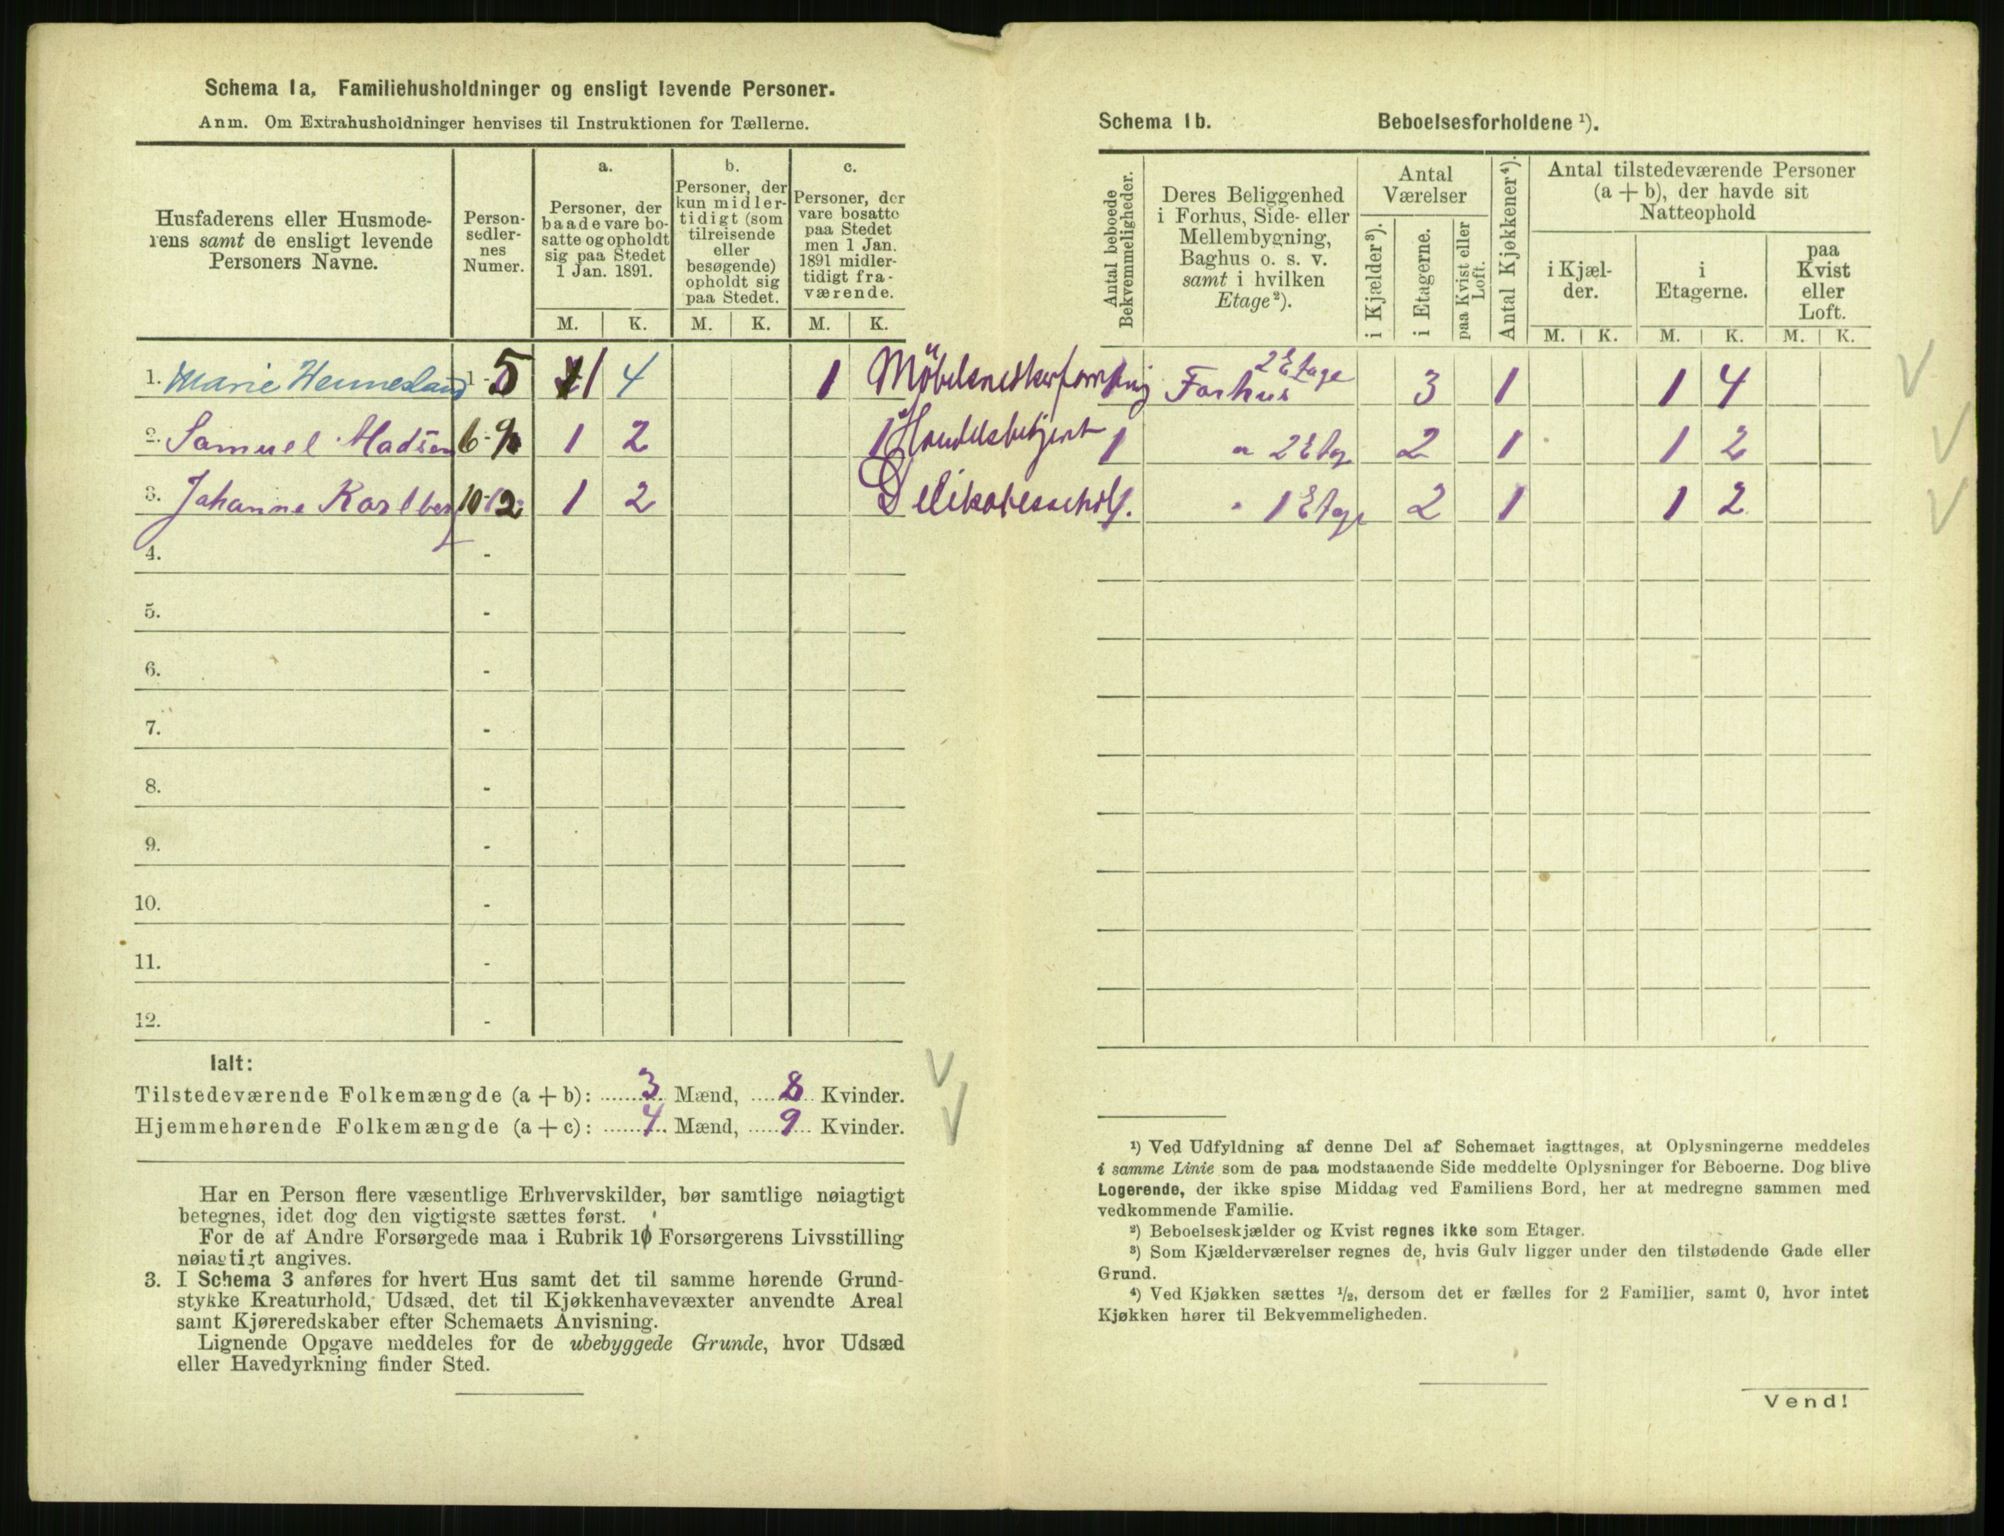 Schema 1a, Familiehusholdninger og ensligt levende Personer.
Anm. Om Extrahusholdninger henvises til Instruktionen for Tællerne.
Husfaderens eller Husmoderens samt de ensligt levende Personers Navne.
Personsedlernes Numer.
a.
Personer, der baade vare bosatte og opholdt sig paa Stedet 1 Jan. 1891.
b.
Personer, der kun midlertidigt (som tilreisende eller besøgende) opholdt sig paa Stedet.
c.
Personer, der vare bosatte paa Stedet men 1 Jan. 1891 midlertidigt fraværende.
M. K. M. K. M. K.
1. Marie Henneslaud 1 - 5 1 4 1
2. Samuel Madsen 6 - 9 1 2 1 Handelsbetjent
3. Johanne Karlberg 10 - 12 1 2
4. -
5. -
6. -
7. -
8. -
9. -
10. -
11. -
12. -
Ialt:
Tilstedeværende Folkemængde (a + b): 3 Mænd, 8 Kvinder.
Hjemmehørende Folkemængde (a + c): 4 Mænd, 9 Kvinder.
Har en Person flere væsentlige Erhvervskilder, bør samtlige nøiagtigt
betegnes, idet dog den vigtigste sættes først.
For de af Andre Forsørgede maa i Rubrik 10 Forsørgerens Livsstilling
nøiagtigt angives.
3. I Schema 3 anføres for hvert Hus samt det til samme hørende Grund-
stykke Kreaturhold, Udsæd, det til Kjøkkenhavevæxter anvendte Areal
samt Kjøreredskaber efter Schemaets Anvisning.
Lignende Opgave meddeles for de ubebyggede Grunde, hvor Udsæd
eller Havedyrkning finder Sted.
Schema 1b. Beboelsesforholdene ¹).
Antal beboede Bekvemmeligheder.
Deres Beliggenhed i Forhus, Side- eller Mellembygning, Baghus o. s. v. samt i hvilken Etage ²).
Antal Værelser
i Kjælder ³).
i Etagerne.
paa Kvist eller Loft.
Antal Kjøkkener ⁴).
Antal tilstedeværende Personer (a + b), der havde sit Natteophold
i Kjælder.
i Etagerne.
paa Kvist eller Loft.
M. K. M. K. M. K.
1 Forhus 2 Etage 3 1 1 4
1 " 2 Etag 2 1 1 2
1. " 1 Etage 2 1 1 2
¹) Ved Udfyldning af denne Del af Schemaet iagttages, at Oplysningerne meddeles
i samme Linie som de paa modstaaende Side meddelte Oplysninger for Beboerne. Dog blive
Logerende, der ikke spise Middag ved Familiens Bord, her at medregne sammen med
vedkommende Familie.
²) Beboelseskjælder og Kvist regnes ikke som Etager.
³) Som Kjælderværelser regnes de, hvis Gulv ligger under den tilstødende Gade eller
Grund.
⁴) Ved Kjøkken sættes ½, dersom det er fælles for 2 Familier, samt 0, hvor intet
Kjøkken hører til Bekvemmeligheden.
Vend!